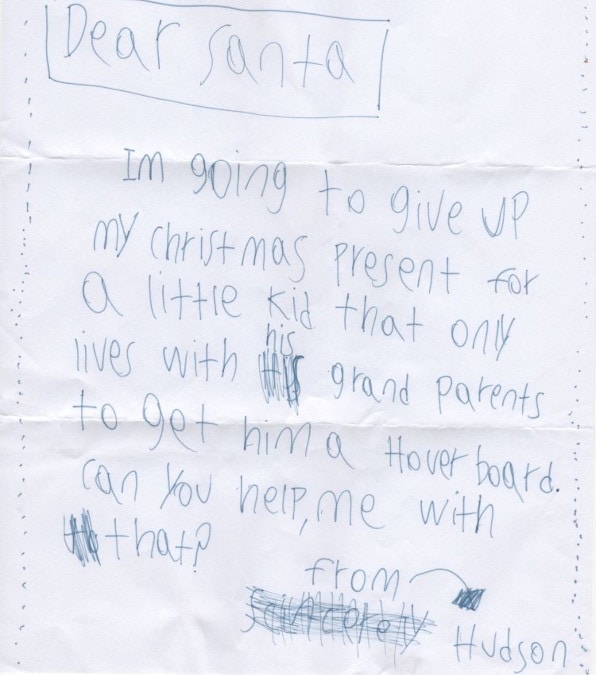 Dear Santa
Im going to give up
my christmas present for
a little kid that only
lives with his grand parents
to get him a Hover board.
can you help, me with
that?
from
Hudson